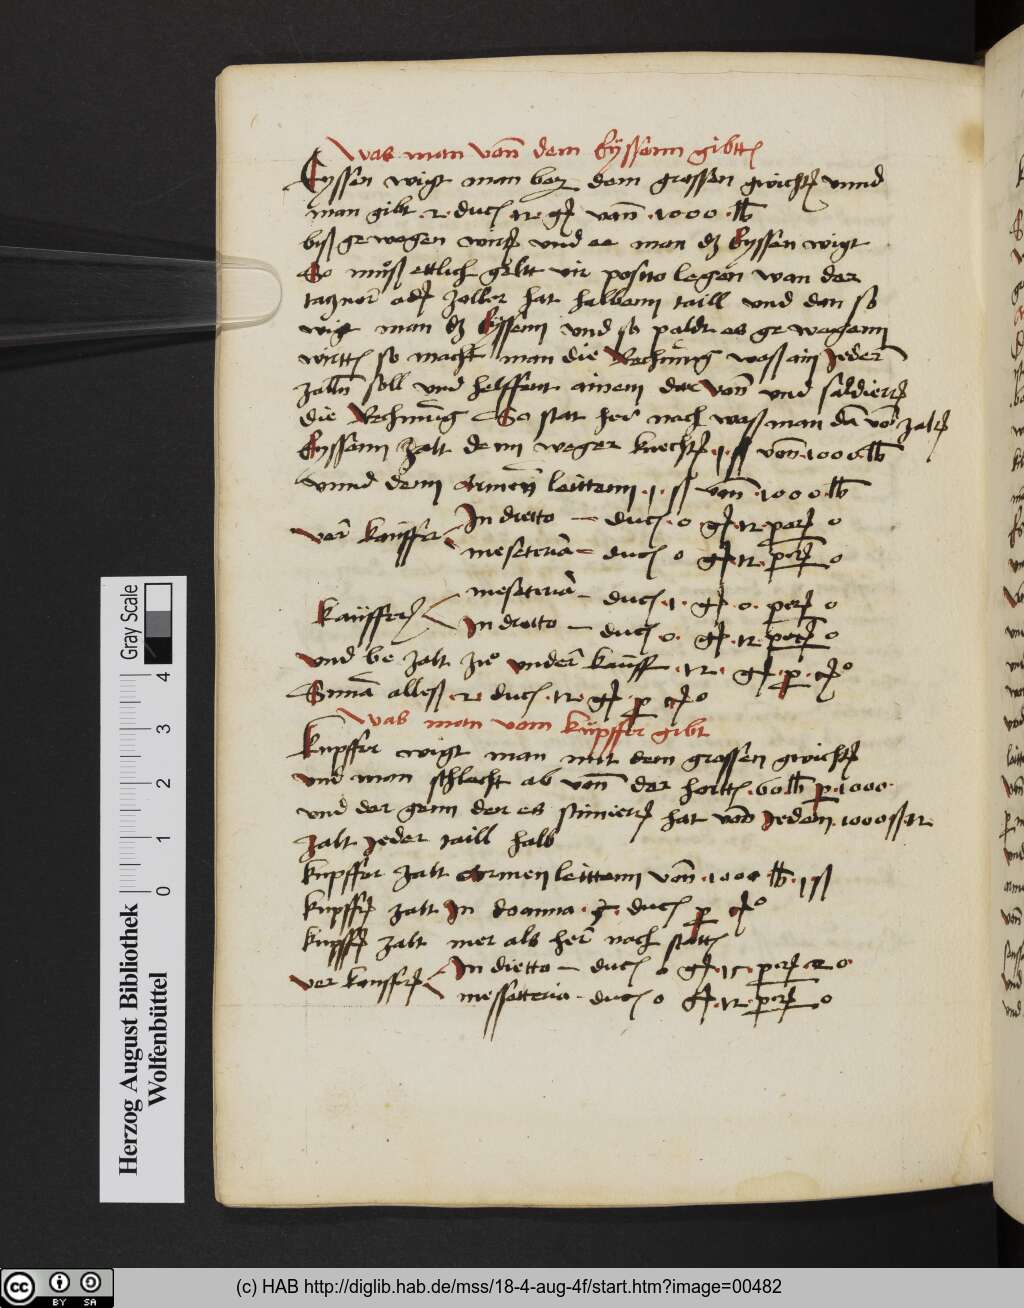 Was man vonn dem Eyssenn gibtt
Eyssen wigt man bey dem grossen gwicht vnnd
man gibt 2 duc 12 g vonn 1000 lb
biß gewogen wirt vnd ee man dz Eyssen wigt
So muͦß ettlich geltt vir posito legen wan der
zoller hat halbenn taill vnd den so
wigt man dz Eyssenn vnd so paldt es gewagenn
wirtt so macht man die Rechnung waß ain Jeder
zalln soll vnd helffent ainem dar von vnd saldierr
die Rechnung So stat her nach waß man da von zalt
Eyssenn zalt denn weger knecht 1 ß von 1000 lb
vnnd denn Armenn leittenn 1 ß vonn 1000 lb
ver kauffer In dretto – duc 0 g 12 per 0
meseteria – duc 0 g 12 per 0
kauffer meseteria – duc 1 g 0 per 0
In dretto – duc 0 g 12 per 0
vnd be zalt vnder kauff 12 g p c°
Suma alleß 2 duc 12 g p c°
Was man vom kupffer gibt
kupffer wigt man mit dem grossen gwicht
vnd man schlecht ab vonn der 60 lb p 1000
vnd der genn der es hat von Jedem 1000
zalt Jeder taill halb
kupffer zalt Armen leittenn vonn 1000 lb 1 ß
kupffer zalt In doanna duc p c°
kupffer zalt mer als her nach statt
ver kauffer In dietto – duc 0 g 12 per 0
messetteria – duc 0 g 12 per 0
Gray Scale
4
3
2
1
0
Herzog August Bibliothek
Wolfenbüttel
cc BY SA
(c) HAB http://diglib.hab.de/mss/18-4-aug-4f/start.htm?image=00482